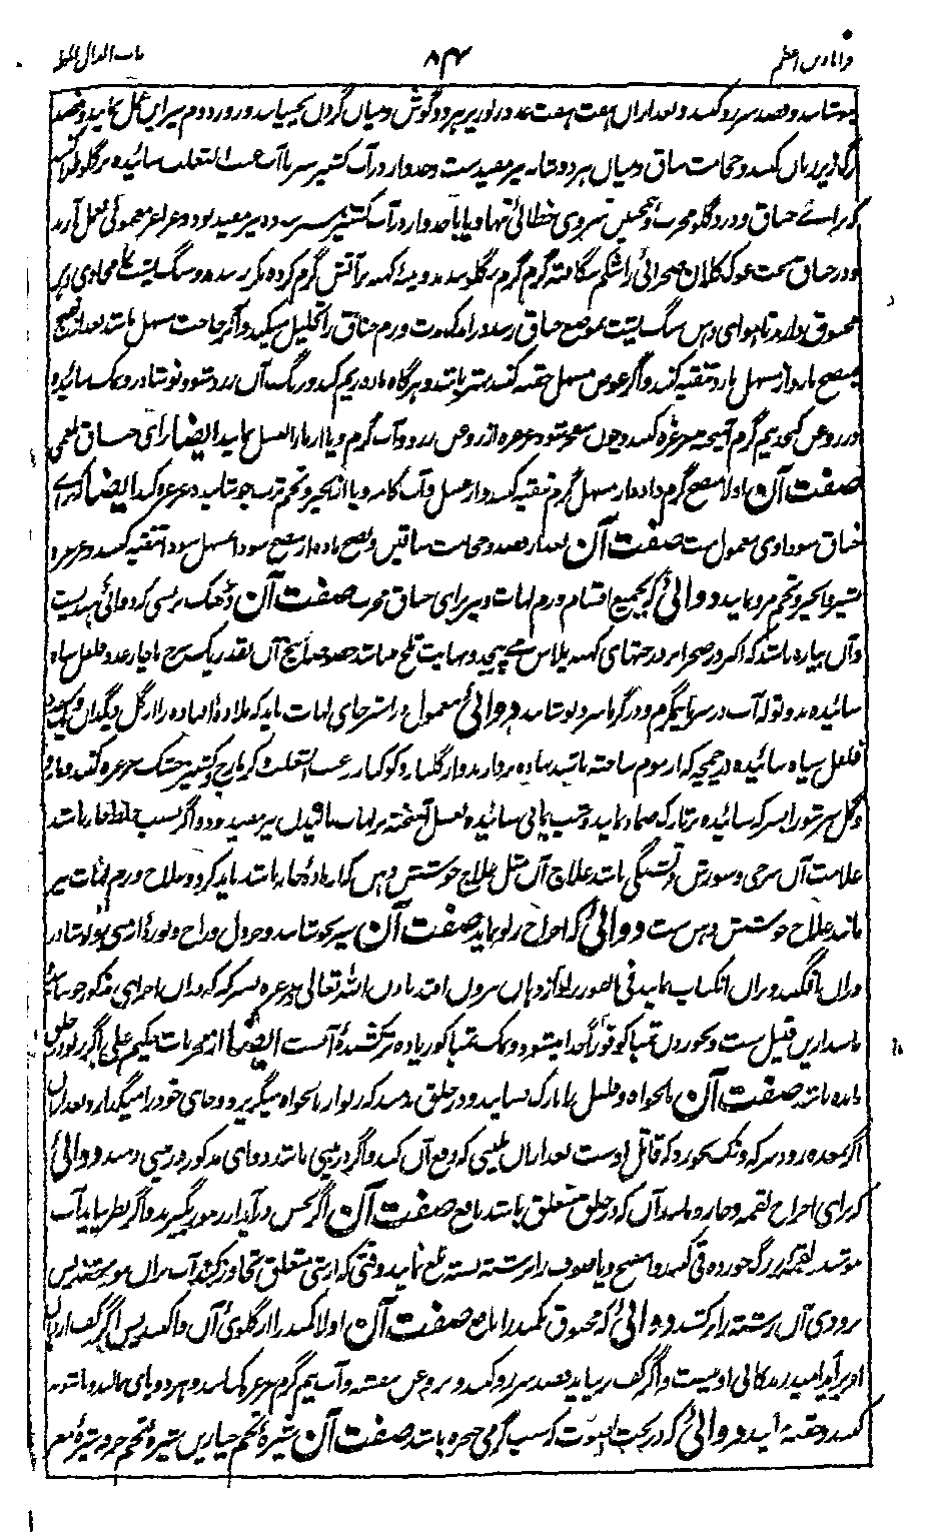 قرابادین اعظم ۸۴ باب الدال المهملة
بنوشانند و فصد سررو کنند و بعد ازان هفت هفت عدد زلو زیر هر دو گوش و میان گردن بچسپانند و روز دوم نیز این عمل نمایند و فصد
رگ زیر زبان کنند و حجامت ساق و میان هر دو شانه نیز مفید ست و جدوار در آب کشنیز سبز یا آب عنب الثعلب سائیده بر گلو طلا کنند
که برای خناق و درد گلو مجرب و همچنین خطائی تنها و یا با جدوار در آب کشنیز سبز سوده نیز مفید بود و غراغر معمولی بعمل آرند
و در خناق سخت غوک کلان صحرائی را شکم شگافته گرم گرم بر گلو بندند و پنبه کهنه بر آتش گرم کرده مکرر بندند و سگ محاذی دهن
مخنوق دارند تا هوای دهن سگ بموضع خناق رسد و ورم خناق را تحلیل میکند و اگر حاجت مسهل باشد بعد از نضج
بمنضج بارد از مسهل بارد تنقیه کنند و اگر عوض مسهل حقنه کنند بهتر باشد و هرگاه ماده ریم کند و رنگ آن زرد شود نوشادر و نمک سائیده
در روغن کنجد نیم گرم آمیخته غرغره کنند و چون منفجر شود غرغره از روغن زرد و آب گرم و یا از ماء العسل نمایند ایضا برای خناق بلغمی
صفت آن اولا منضج گرم داده از مسهل گرم تنقیه کنند و از عسل و آب کامه و یا انجیر و تخم ترب جوشانیده غرغره کند ایضا که برای
خناق سوداوی معمول ست صفت آن بعد از فصد و حجامت ساقین و نضج ماده از منضج سودا بمسهل سودا تنقیه کنند و غرغره
بشیر و انجیر و تخم مرو نمایند دوائی که بجمیع اقسام ورم لهات و نیز برای خناق مجرب صفت آن دوائی هندیست
و آن بیاره باشد که اکثر در صحرا بر درختهای کهنه پلاس می پیچد و نهایت تلخ میباشد خصوصا بیخ آن بقدر یک سرخ با چار عدد فلفل سیاه
سائیده بدو توله آب در سرما نیم گرم و در گرما سرد بنوشانند دوائی معمول در استرخای لهات باید که ملازه افتاده را از گل دیگدان و
فلفل سیاه سائیده در چمچه که از موم ساخته باشند نهاده بردارند و از گلنار و کوکنار و عنب الثعلب و کشنیز خشک غرغره کنند و مازو
و گل سرشور را بسرکه سائیده بر تارک ضماد نمایند و شب یمانی سائیده بعسل آمیخته بر لهات مالیدن نیز مفید بود و اگر بسبب خلط حار باشد
علامت آن سرخی و سوزش و تشنگی باشد علاج آن مثل علاج جوشش دهن که از ماده حار باشد باید کرد و علاج ورم لثه نیز
مانند علاج جوشش دهن ست دوائی که اخراج زلو نماید صفت آن سیر بجوشانند و خردل و زاج و بوره ارمنی و نوشادر
دران افگنند و بران انکباب نمایند فی الفور زلو از دهان بیرون افتد باذن الله تعالی و غرغره بسرکه که دران اجزای مذکور جوشانیده
باشند ازین قبیل ست و بخوردن تنباکو فورا جدا میشود و نمک تنباکو زیاده تر کشنده آنست ایضا از مجربات حکیم علی اگر زلو در حلق
مانده باشد صفت آن نانخواه و فلفل باریک بسایند و در حلق دمند که زلو از نانخواه میگریزد و جای خود را میگذارد و بعد ازان
اگر بمعده رود سرکه و نمک بخورد که قاتل اوست بعد ازان ملینی که دفع آن کند و اگر در بینی باشد دوای مذکور در بینی دمند دوائی
که برای اخراج لقمه و خار و مانند آن که در حلق متعلق باشد نافع صفت آن اگر بحس در آید از زنبور بگیرند و اگر بنظر نیاید آب
نوشند لقمه بزرگ خورده قی کنند و اسفنج و یا صوف را برشته بسته بلع نمایند وقتی که از شی متعلق تجاوز کند آب بران نوشند پس
بزودی آن رشته را برکشند دوائی که مخنوق کمند را نافع صفت آن اولا کمند را از گلوی آن وا کنند پس اگر کف از دهان
او برآید امید زندگانی او نیست و اگر کف نیاید فصد سررو کنند و بروغن بنفشه و آب نیم گرم غرغره کنانند و هر دو پای مالند و پاشویه
کنند و حقنه نمایند دوائی که در بحة الصوت که بسبب گرمی حنجره باشد صفت آن شیره تخم خیارین شیره تخم خرفه شیره مغز